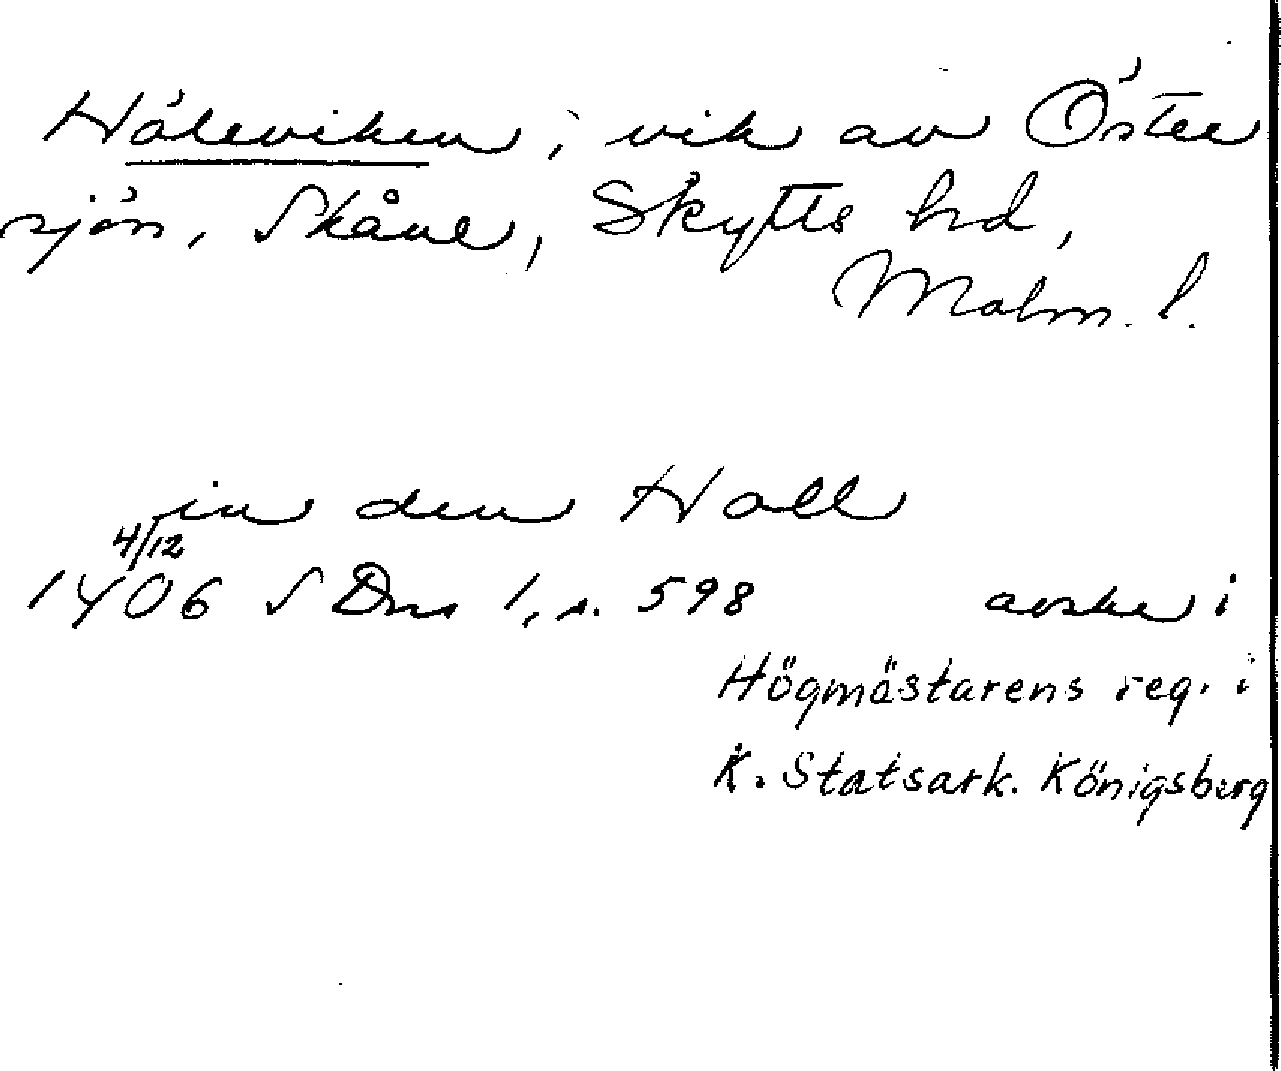 Höleviken, vik av Öster
sjön, Skåne, Skytts hd,
Malm. l.
in den Holl
4/12
1406 SDns 1, s. 598 avskr i
Högmästarens reg. i
K. Statsark. Königsberg